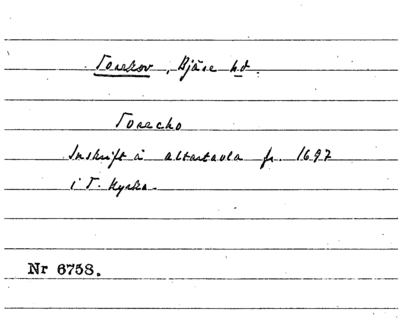 Torekov, Bjäre hd.
Torecho
Inskrift å altartavla fr. 1697
i T. kyrka.
Nr 6758.